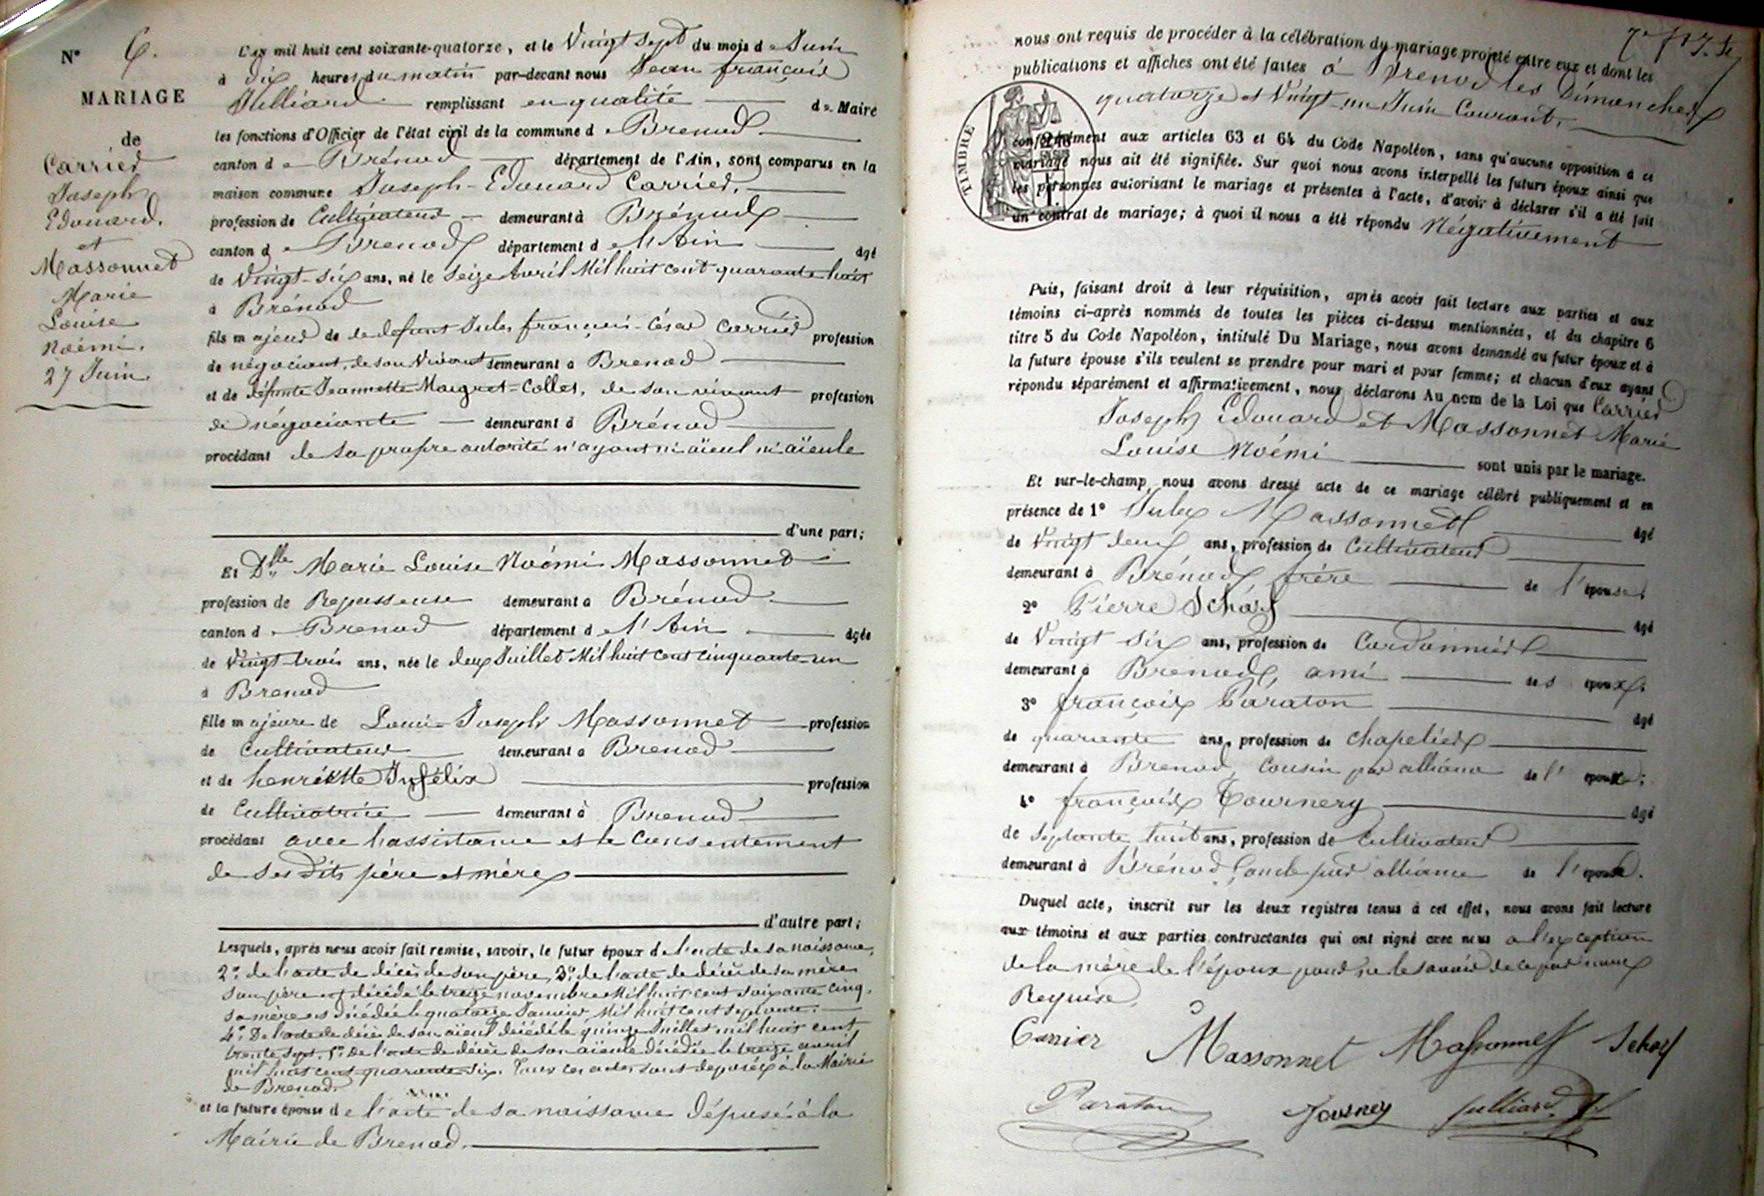 N° 6.
MARIAGE
de
Carrier
Joseph
Edouard.
et
Massonnet
Marie
Louise
Noémi.
27 Juin.
L'an mil huit cent soixante-quatorze, et le Vingt sept du mois de Juin
à dix heures du matin par-devant nous Jean françois
Julliard remplissant en qualité de Maire
les fonctions d'Officier de l'état civil de la commune de Brenod
canton de Brénod département de l'Ain, sont comparus en la
maison commune Joseph-Edouard Carrier,
profession de Cultivateur demeurant à Brénod
canton de Brenod département de l'Ain âgé
de Vingt-six ans, né le Seize Avril Mil huit cent quarante huit
à Brénod
fils majeur de de defunt Jules françois-César Carrier profession
de négociant, de son Vivant demeurant à Brenod
et de défunte Jeannette Maigret-Collet, de son vivant profession
de négociante demeurant à Brénod
procédant de sa propre autorité n'ayant ni aïeul ni aïeule
d'une part;
Et Dlle Marie Louise Noémi Massonnet
profession de Repasseuse demeurant à Brénod
canton de Brenod département de l'Ain âgée
de Vingt trois ans, née le deux Juillet Mil huit cent cinquante un
à Brenod
fille majeure de Louis-Joseph Massonnet profession
de Cultivateur demeurant à Brenod
et de henriette Infélix profession
de Cultivatrice demeurant à Brenod
procédant avec l'assistance et le consentement
de ses dits père et mère
d'autre part;
Lesquels, après nous avoir fait remise, savoir, le futur époux de l'acte de sa naissance,
2° de l'acte de décès de son père, 3° de l'acte de décès de sa mère
son père est décédé le treize novembre Mil huit cent soixante cinq,
sa mère est décédée le quatorze Janvier Mil huit cent septante.
4° De l'acte de décès de son aïeul décédé le quinze Juillet mil huit cent
trente sept. 5° De l'acte de décès de son aïeule décédée le treize avril
mil huit cent quarante six. Tous ces actes sont déposés à la Mairie
de Brenod.
et la future épouse de l'acte de sa naissance déposé à la
Mairie de Brenod.
nous ont requis de procéder à la célébration du mariage projeté entre eux et dont les
publications et affiches ont été faites à Brenod les Dimanches
quatorze et Vingt-un Juin Courant,
TIMBRE
conformément aux articles 63 et 64 du Code Napoléon, sans qu'aucune opposition à ce
mariage nous ait été signifiée. Sur quoi nous avons interpellé les futurs époux ainsi que
les personnes autorisant le mariage et présentes à l'acte, d'avoir à déclarer s'il a été fait
un contrat de mariage; à quoi il nous a été répondu Négativement
Puis, faisant droit à leur réquisition, après avoir fait lecture aux parties et aux
témoins ci-après nommés de toutes les pièces ci-dessus mentionnées, et du chapitre 6
titre 5 du Code Napoléon, intitulé Du Mariage, nous avons demandé au futur époux et à
la future épouse s'ils veulent se prendre pour mari et pour femme; et chacun d'eux ayant
répondu séparément et affirmativement, nous déclarons Au nom de la Loi que Carrier
Joseph Edouard et Massonnet Marie
Louise Noémi sont unis par le mariage.
Et sur-le-champ, nous avons dressé acte de ce mariage célébré publiquement et en
présence de 1° Jules Massonnet âgé
de Vingt deux ans, profession de Cultivateur
demeurant à Brénod, frère de l'épouse;
2° Pierre Scháf âgé
de Vingt Six ans, profession de Cordonnier
demeurant à Brenod, ami des époux;
3° françois Paraton âgé
de quarante ans, profession de chapelier
demeurant à Brenod, cousin par alliance de l'époux;
4° françois Tournery âgé
de Septante huit ans, profession de Cultivateur
demeurant à Brénod, oncle par alliance de l'épouse.
Duquel acte, inscrit sur les deux registres tenus à cet effet, nous avons fait lecture
aux témoins et aux parties contractantes qui ont signé avec nous à l'exception
de la mère de l'époux pour ne le savoir de ce par nous
Requise.
Carrier Massonnet Massonnet Schaf
Paraton Journey Julliard